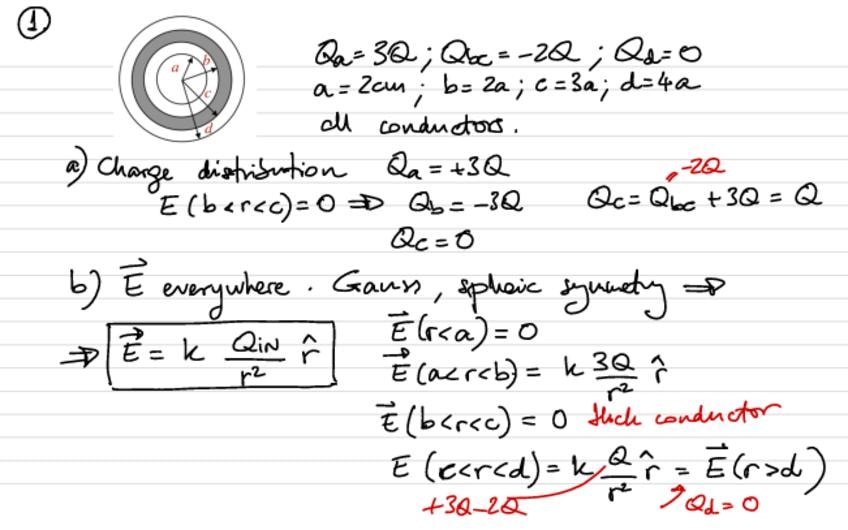 ①
a b c d
Qa = 3Q ; Qbc = -2Q ; Qd = 0
a = 2cm ; b = 2a ; c = 3a ; d = 4a
all conductors.
a) Charge distribution Qa = +3Q
-2Q
E (b<r<c) = 0 ⇒ Qb = -3Q Qc = Qbc + 3Q = Q
Qc = 0
b) E⃗ everywhere. Gauss, spheric symmetry ⇒
E⃗(r<a) = 0
⇒ E⃗ = k QIN/r² r̂
E⃗(a<r<b) = k 3Q/r² r̂
E⃗(b<r<c) = 0 thick conductor
E (c<r<d) = k Q/r² r̂ = E⃗(r>d)
+3Q-2Q Qd = 0